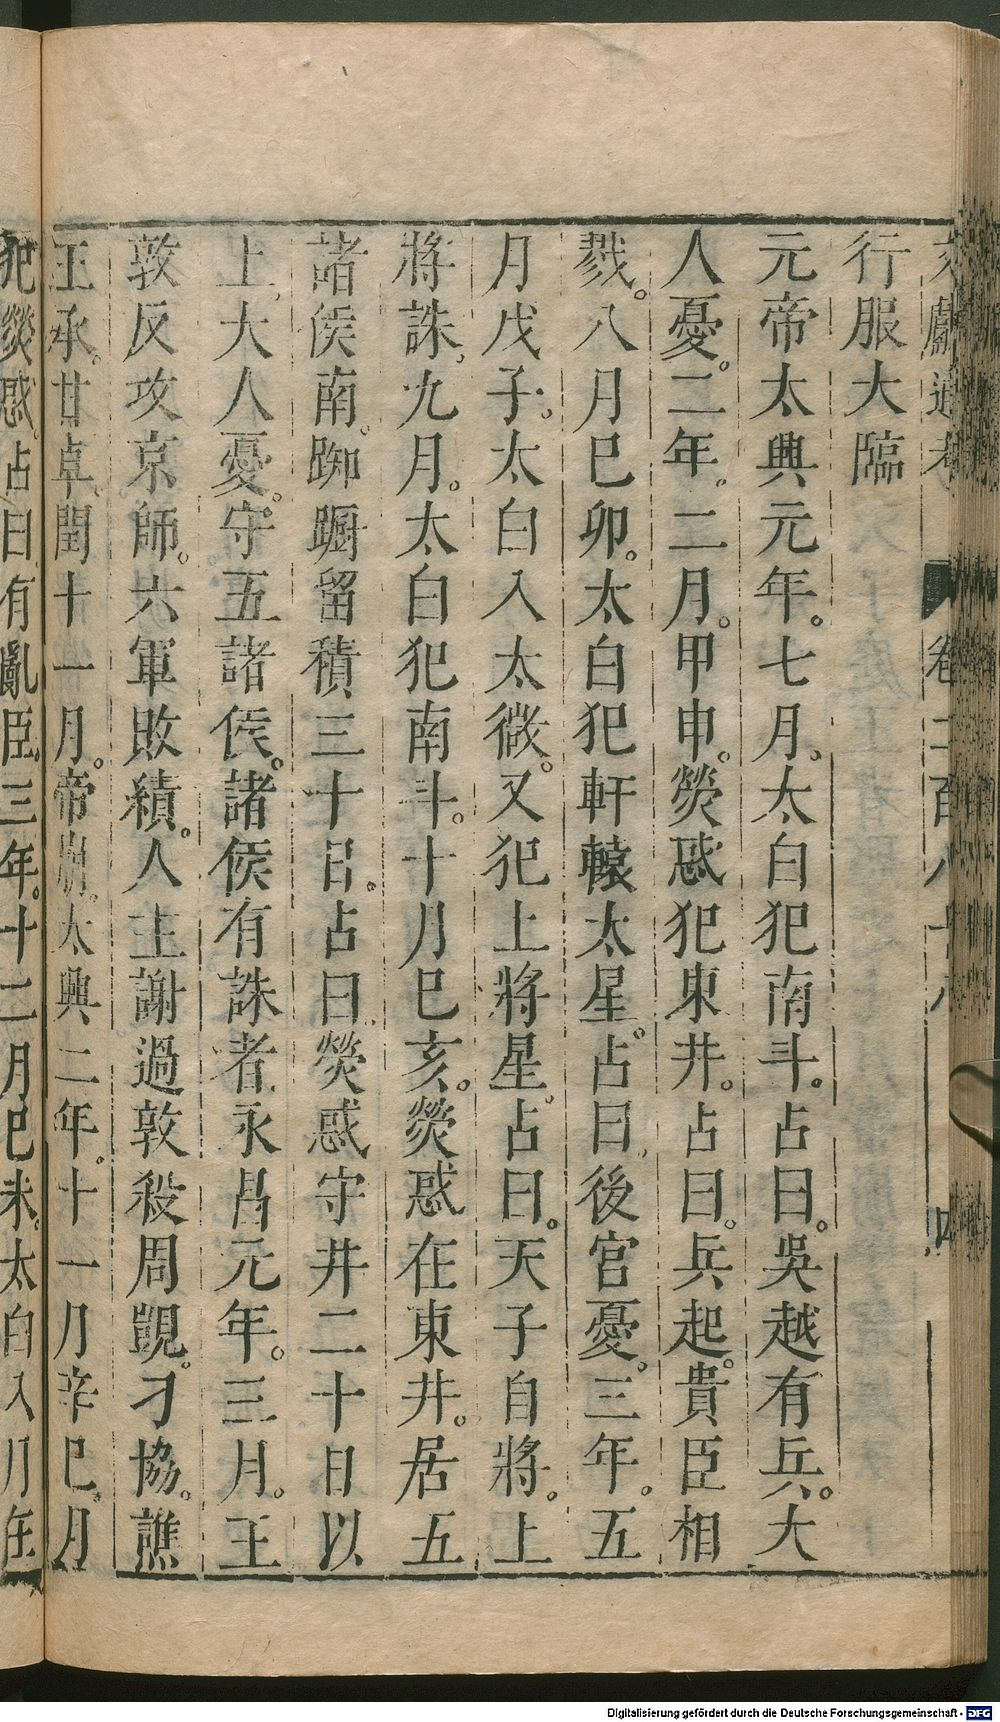 文獻通考 卷二百八十八 四
行服大臨
元帝太興元年。七月。太白犯南斗。占曰。吳越有兵。大
人憂。二年。二月。甲申。熒惑犯東井。占曰。兵起。貴臣相
戮。八月巳卯。太白犯軒轅太星。占曰。後宮憂。三年。五
月戊子。太白入太微。又犯上將星。占曰。天子自將。上
將誅。九月。太白犯南斗。十月巳亥。熒惑在東井。居五
諸侯南。踟躕留積三十日。占曰。熒惑守井二十日以
上。大人憂。守五諸侯。諸侯有誅者。永昌元年。三月。王
敦反攻京師。六軍敗績。人主謝過敦殺周顗。刁協。譙
王承。甘卓。閏十一月。帝崩。太興二年。十一月辛巳。月
犯熒惑。占曰有亂臣。三年。十二月巳未。太白入月在
Digitalisierung gefördert durch die Deutsche Forschungsgemeinschaft - DFG